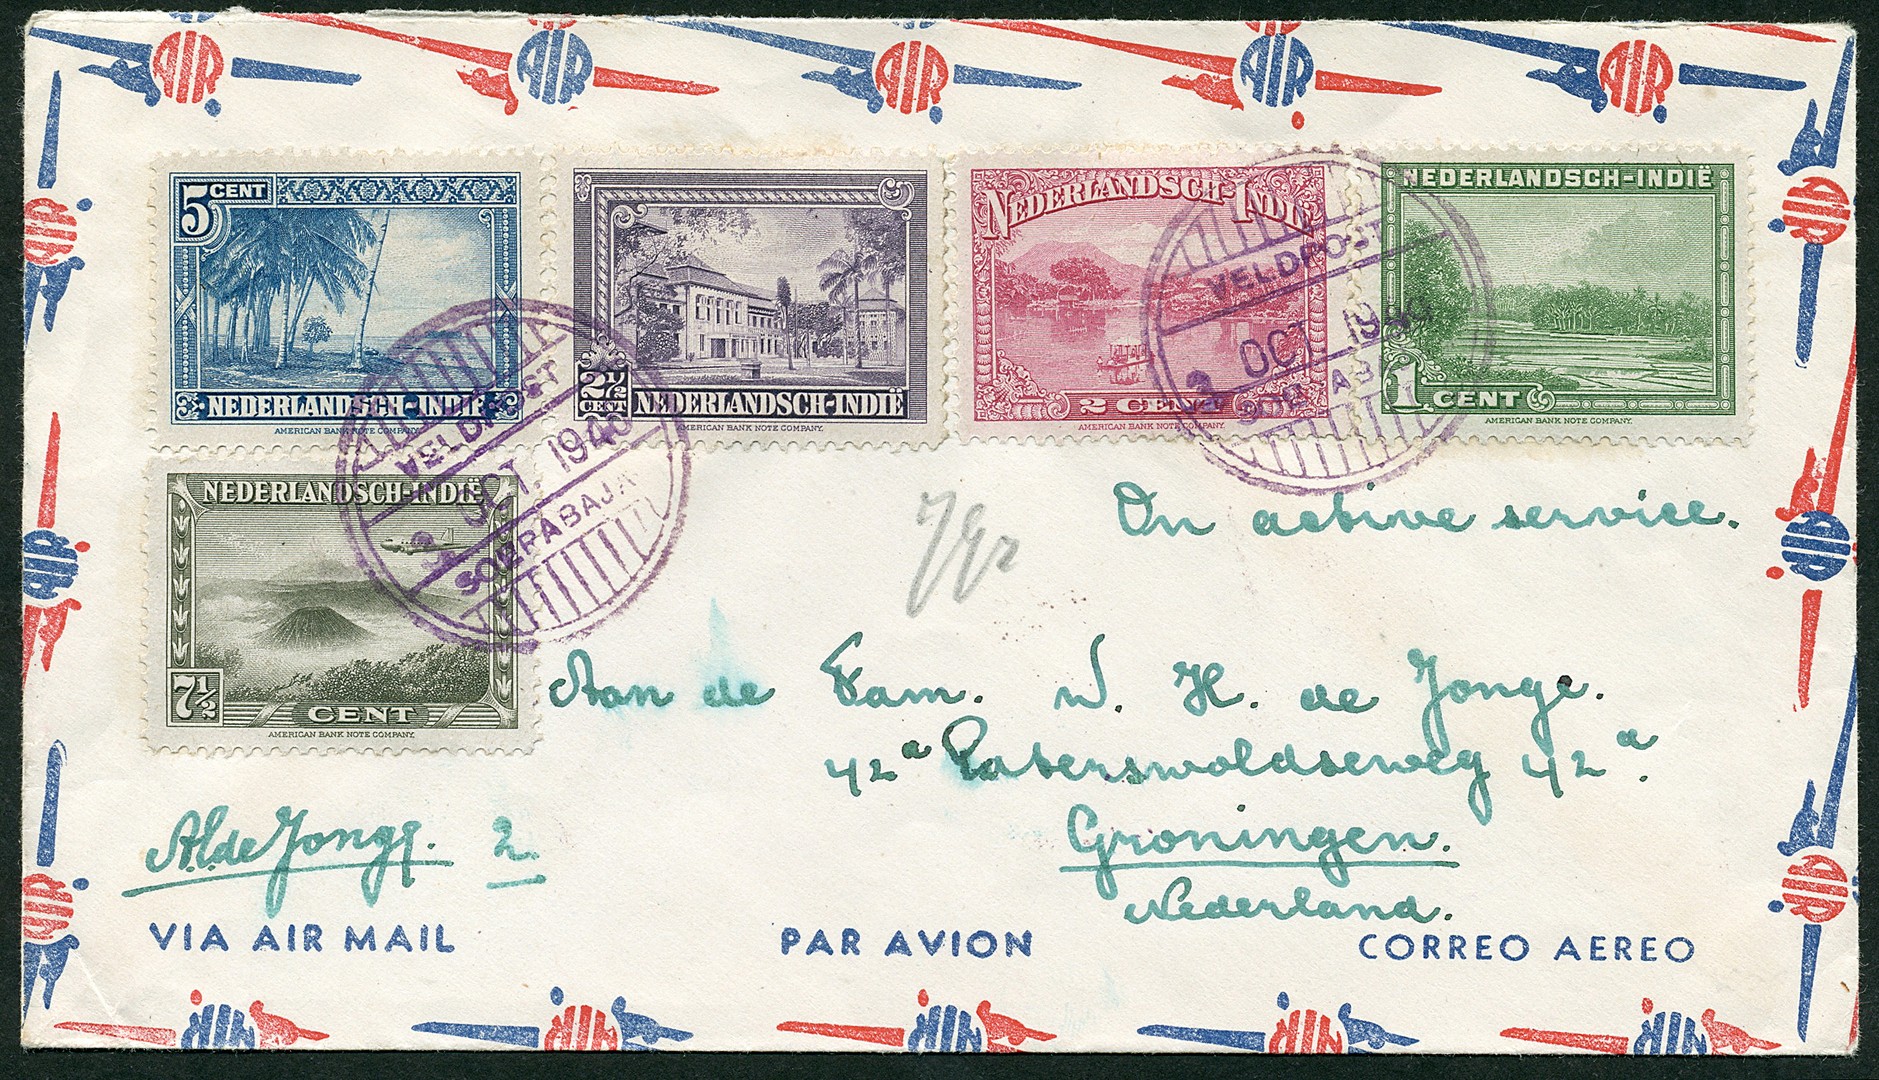 AIR AIR AIR AIR AIR
5 CENT
NEDERLANDSCH-INDIË
AMERICAN BANK NOTE COMPANY.
2½ CENT NEDERLANDSCH-INDIË
AMERICAN BANK NOTE COMPANY.
NEDERLANDSCH-INDIË
2 CENT
AMERICAN BANK NOTE COMPANY.
NEDERLANDSCH-INDIË
1 CENT
AMERICAN BANK NOTE COMPANY.
VELDPOST
OCT. 1946
SOERABAJA
VELDPOST
OCT. 1946
SOERABAJA
NEDERLANDSCH-INDIË
7½
CENT
AMERICAN BANK NOTE COMPANY.
On active service.
Aan de Fam. W. H. de Jonge.
42a Paterswoldseweg 42a.
Groningen.
Nederland.
A. de Jonge. 2.
VIA AIR MAIL PAR AVION CORREO AEREO
AIR AIR AIR AIR AIR